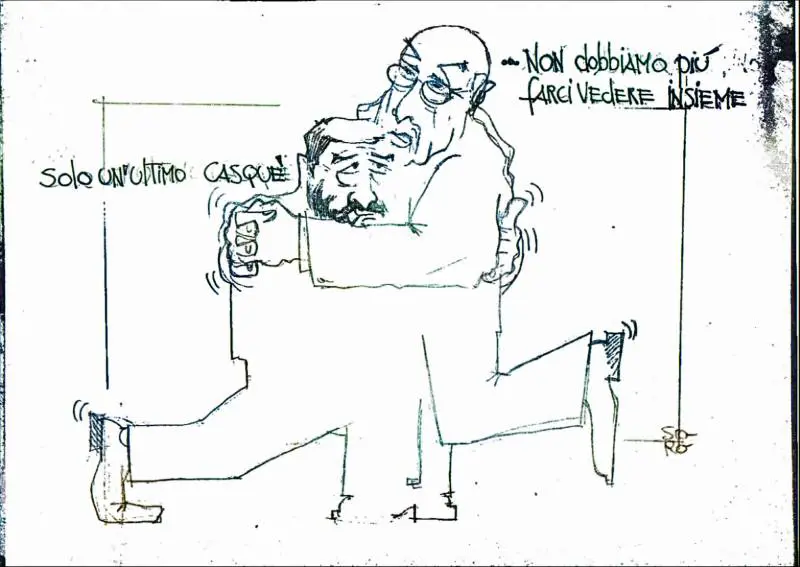 ... NON dobbiamo più
farci vedere insieme
Solo un'ultimo CASQUÈ
SO-
RO